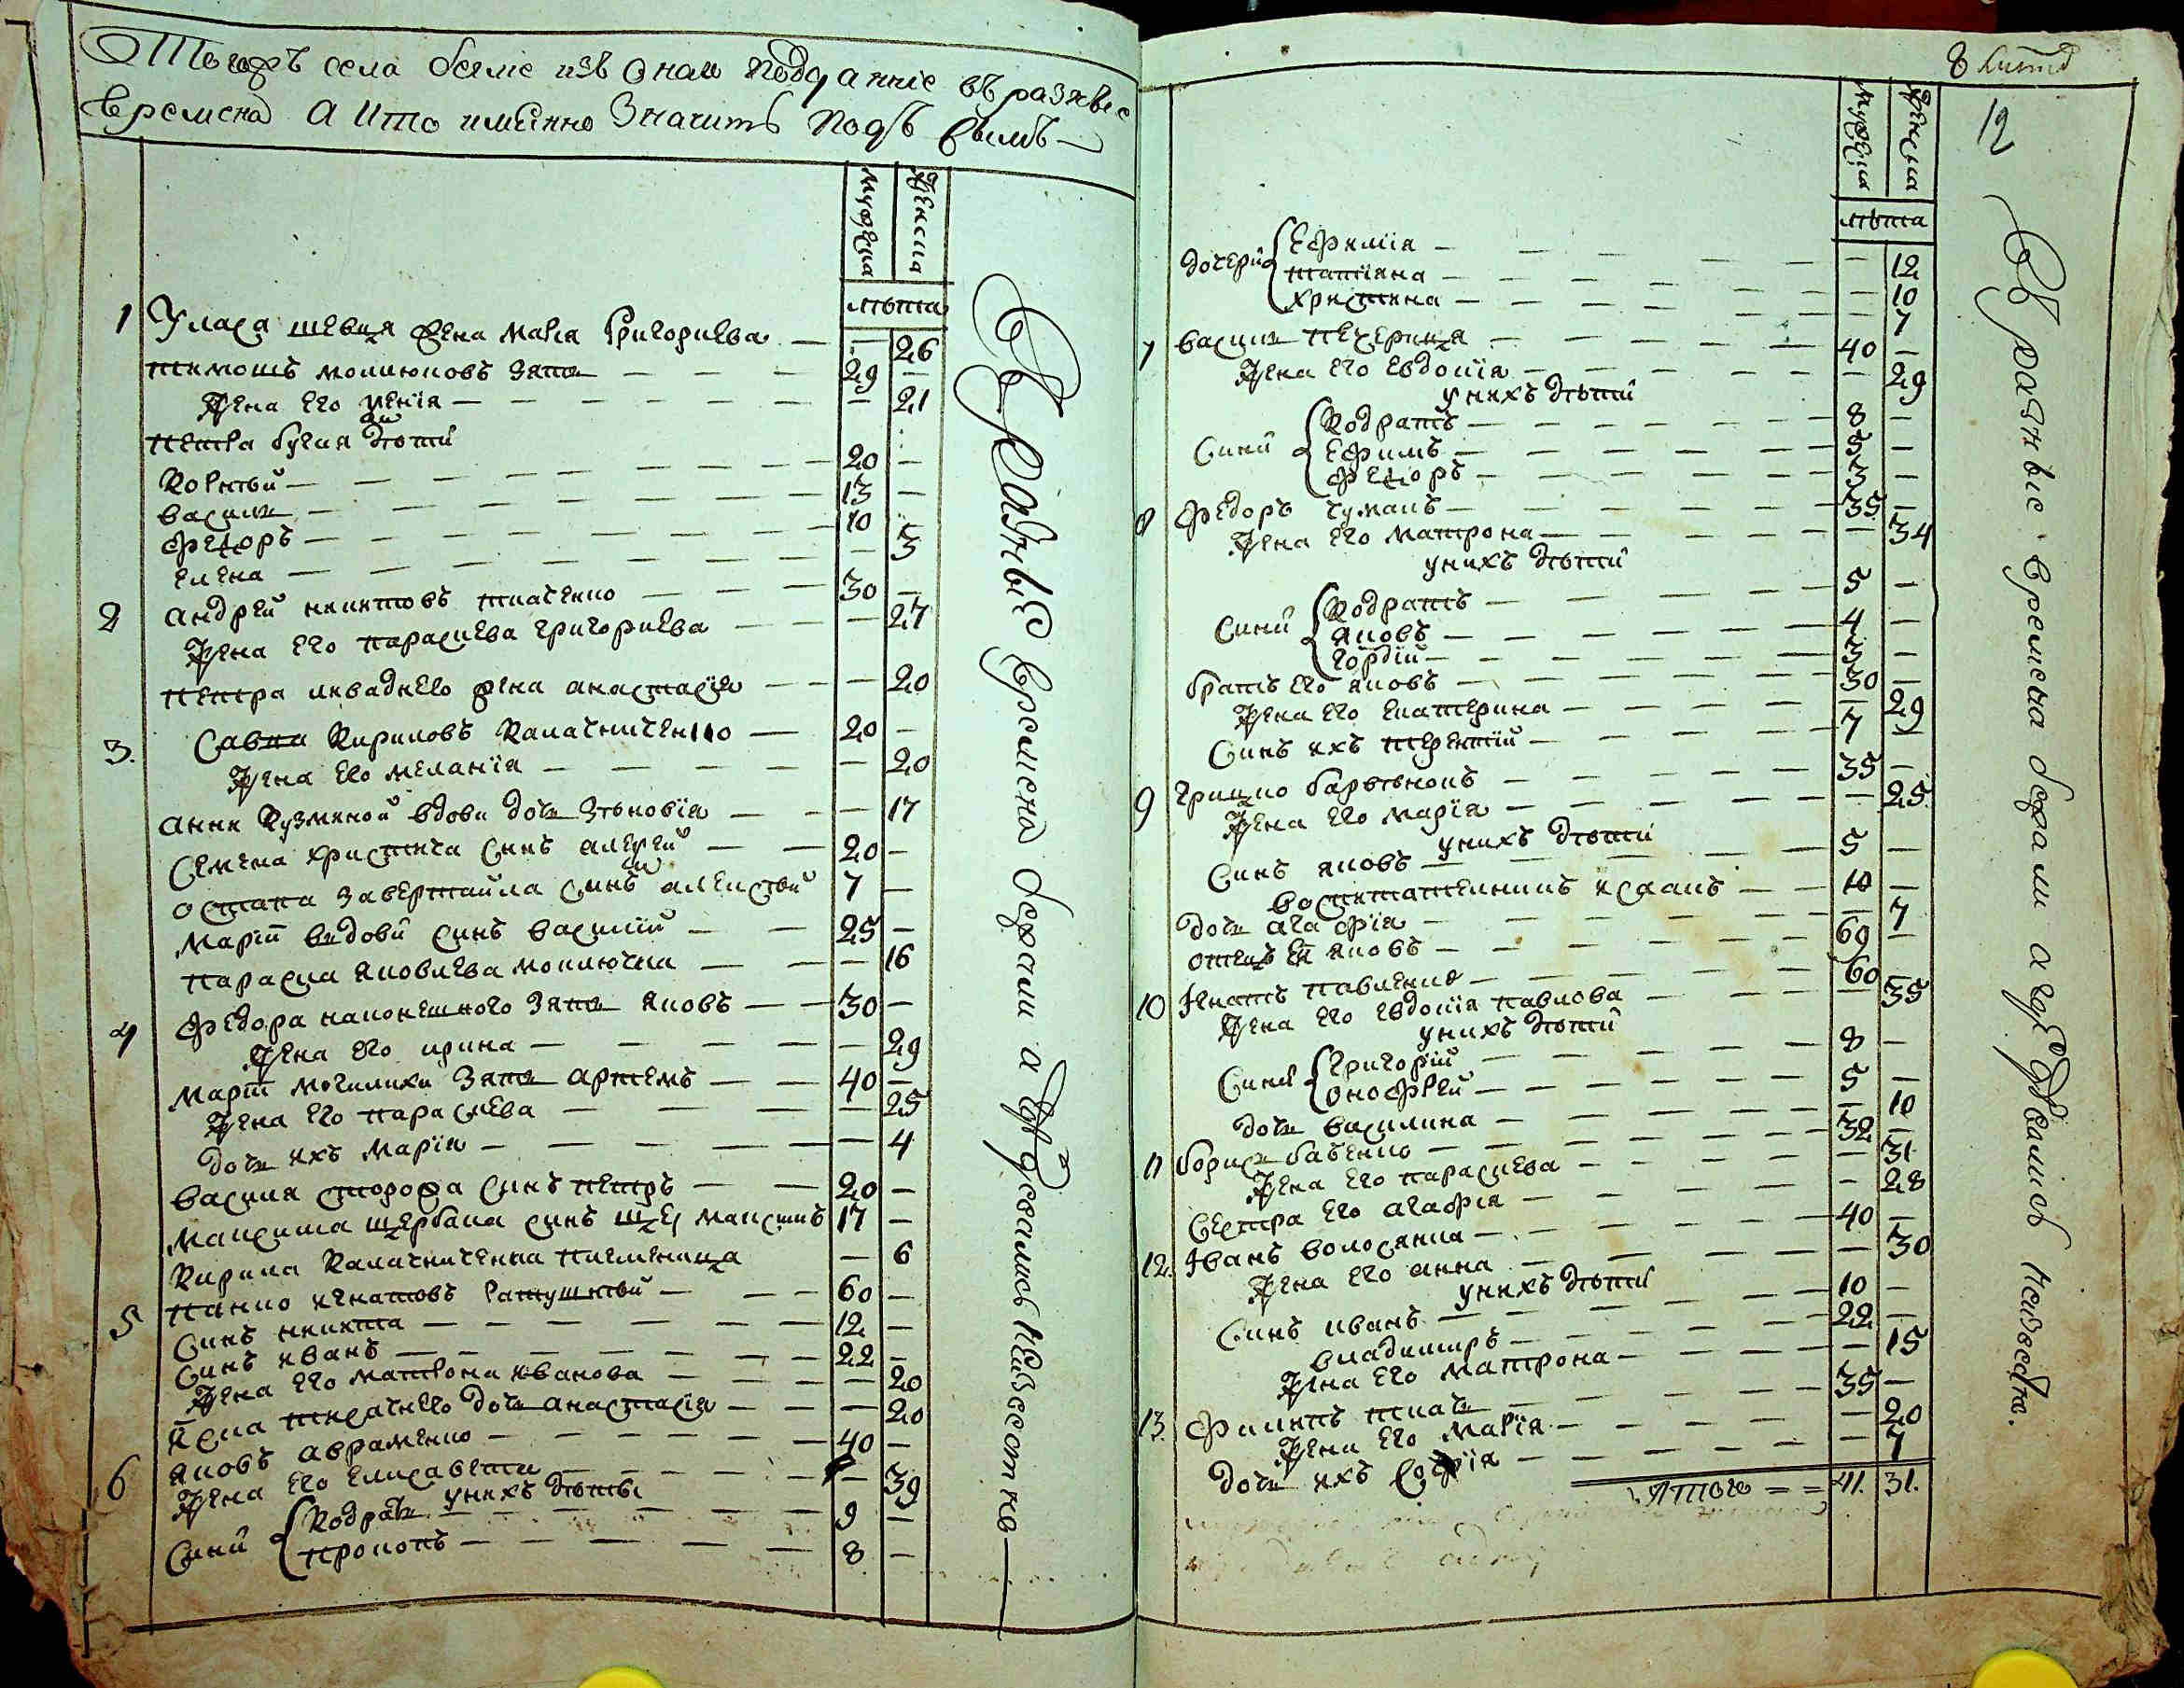 Тогожъ села беглie изъ оного подданнie въ разнie
времена а кто имянно значитъ подъ симъ —
мужеска
женска
лѣта
1 Уласа шевця жена маря григориева — — 26
тимошъ молпюковъ зять — 29 —
жена его ксенїя — — 21
петра бугая дѣти
корнѣй — 20 —
василь — 13 —
федоръ — 10
елена — — 3
2 андрей никитовъ ткаченко — 30 —
жена его параскева григориева — — 27
петра инваднего жена анастасїя — — 20
3. Савка кириловъ калатничен1ко — 20 —
жена его меланїя — — 20
анни кузминой вдови дочь зѣновїя — — 17
семена христича синъ алексей — 20 —
остапа завертайла синъ алексѣй 7 —
марiи вдови синъ василїй — 25 —
параска яковлева моключка — — 16
4 федора наконешного зять яковъ — 30 —
жена его ирина — — 29
марiи могилихи зять артемъ — 40 —
жена его параскева — — 25
дочь ихъ марїя — — 4
василя сторожа синъ петръ — 20 —
максима щербака синъ максимъ 17 —
кирила калатниченка племеница — 6
5 панко игнатовъ ратушнѣй — 60 —
синъ никита — 12 —
синъ иванъ — 22 —
жена его матрона иванова — — 20
дочь анастасїя — — 20
6 яковъ авраменко — 40 —
жена его елисавета — — 39
унихъ дѣти
сини кодратъ — 9 —
прокопъ — 8 —
Въ разныe времена бежали а где делись неизвестно —
8 листъ
12
мужеска
женска
лѣта
дочери ефимїя — — 12
татїяна — — 10
христина — — 7
7 василь печериця — 40 —
жена его евдокїя — — 29
унихъ дѣти
сини кодратъ — 8 —
ефимъ — 5 —
федоръ — 3 —
8 федоръ чумакъ — 35 —
жена его матрона — — 34
унихъ дѣти
сини кодратъ — 5 —
яковъ — 4 —
гордїй — 3 —
братъ его яковъ — 30 —
жена его екатерина — — 29
синъ ихъ терентїй — 7 —
9 грицко — 35 —
жена его марїя — — 25
унихъ дѣти
синъ яковъ — 5 —
воспитателникъ исаакъ — 10 —
дочь агафїя — — 7
отецъ ей яковъ — 69 —
10 Iгнатъ павленко — 60 —
жена его евдокїя павлова — — 35
унихъ дѣти
сини григорїй — 8 —
онофрей — 5 —
дочь василина — — 10
11 борисъ бабенко — 32 —
жена его параскева — — 31
сестра его агафїя — — 28
12. Iванъ волосянка — 40 —
жена его анна — — 30
унихъ дѣти
синъ иванъ — 10 —
владимиръ — 22 —
жена его матрона — — 15
13. филипъ ткачъ — 35 —
жена его марїя — — 20
дочь ихъ софїя — — 7
Итого = = 41. 31.
Въ разныe времена бежали а где девались неизвестно.